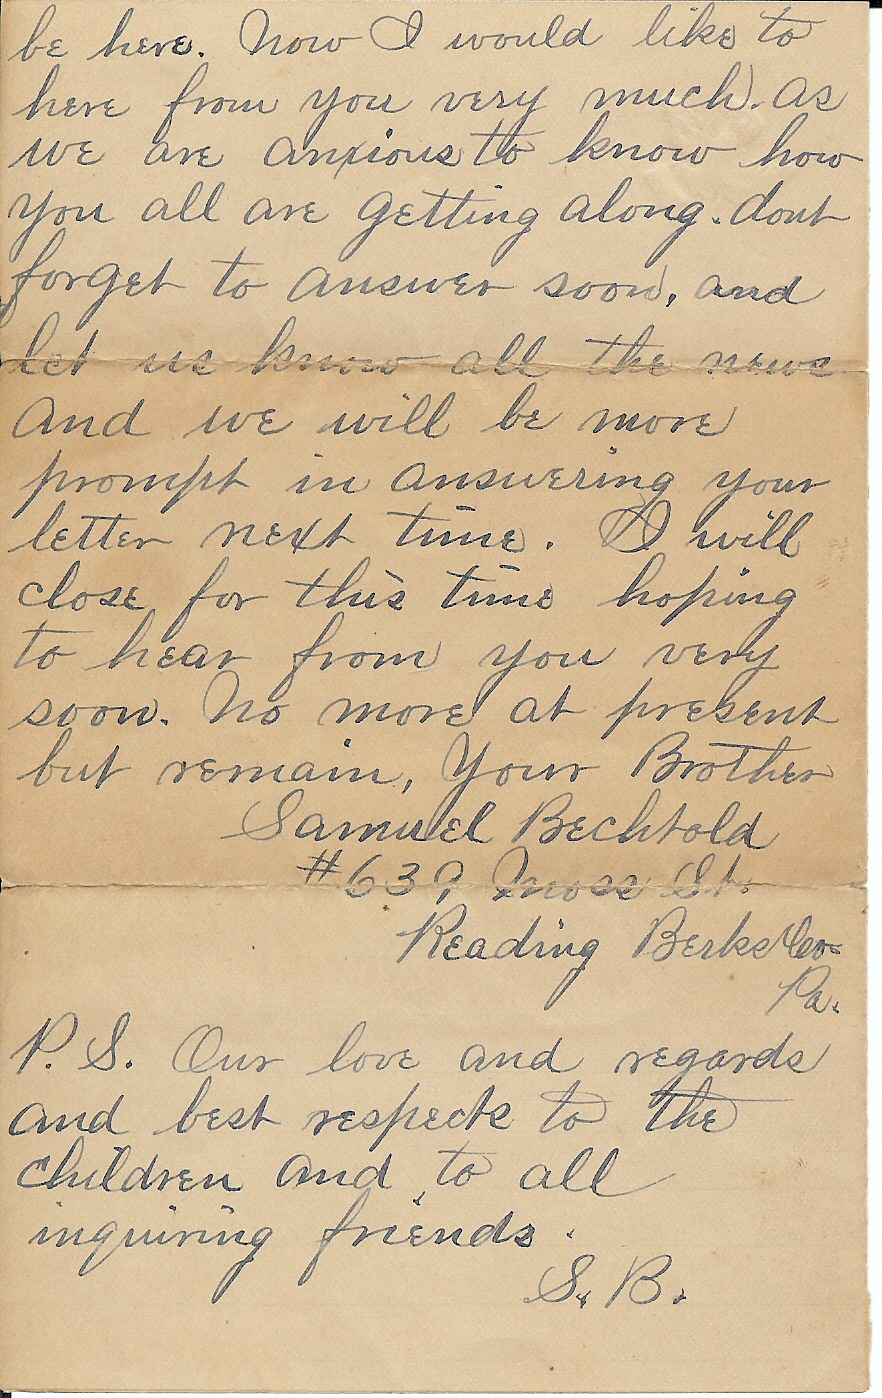 be here. Now I would like to
here from you very much. as
we are anxious to know how
you all are getting along. dont
forget to answer soon, and
let us know all the news
and we will be more
prompt in answering your
letter next time. I will
close for this time hoping
to hear from you very
soon. No more at present
but remain, Your Brother
Samuel Bechtold
#639 Moss St.
Reading Berks Co.
Pa.
P. S. Our love and regards
and best respects to the
children and to all
inquiring friends.
S. B.